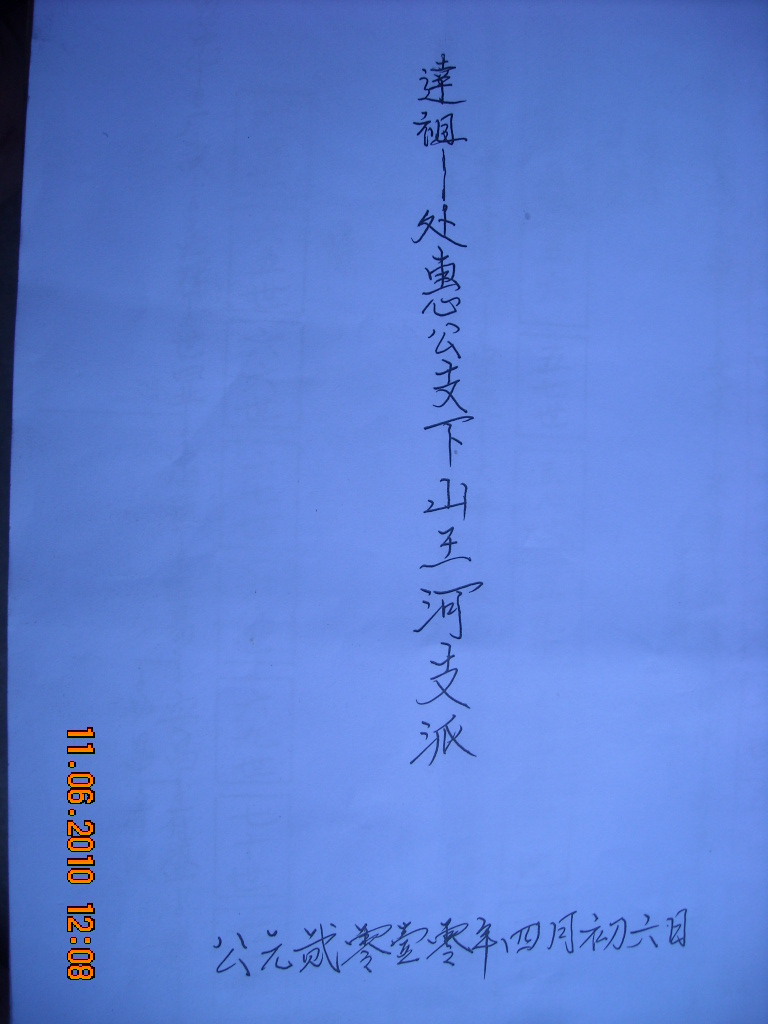 達祖—处惠公支下山王河支派
公元贰零壹零年四月初六日
11.06.2010 12:08